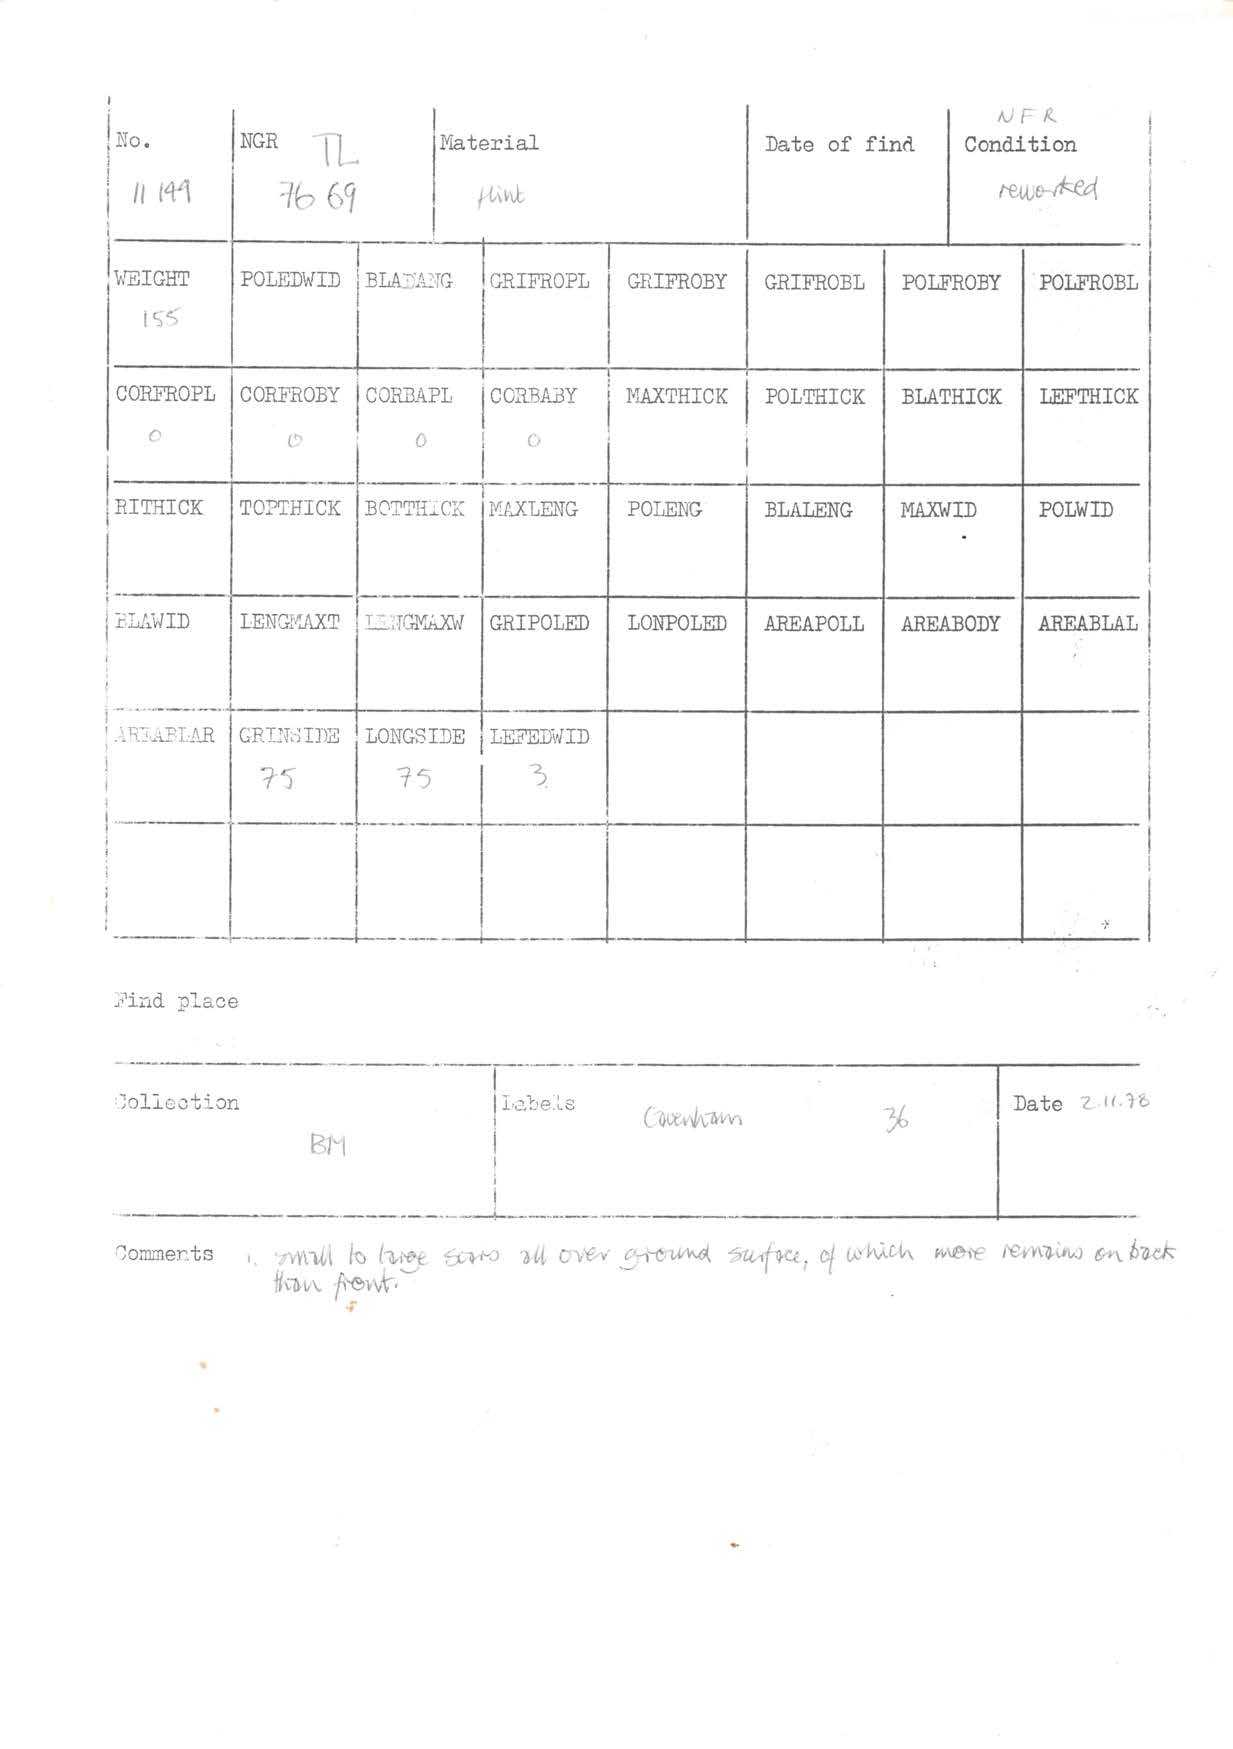 NFR
No. NGR TL Material Date of find Condition
11 149 76 69 flint reworked
WEIGHT POLEDWID BLADANG GRIFROPL GRIFROBY GRIFROBL POLFROBY POLFROBL
155
CORFROPL CORFROBY CORBAPL CORBABY MAXTHICK POLTHICK BLATHICK LEFTHICK
0 0 0 0
RITHICK TOPTHICK BOTTHICK MAXLENG POLENG BLALENG MAXWID POLWID
BLAWID LENGMAXT LENGMAXW GRIPOLED LONPOLED AREAPOLL AREABODY AREABLAL
AREABLAR GRINSIDE LONGSIDE LEFEDWID
75 75 3
Find place
Collection Labels Cavenham 36 Date 2.11.78
BM
Comments 1. small to large scars all over ground surface, of which more remains on back
than front.